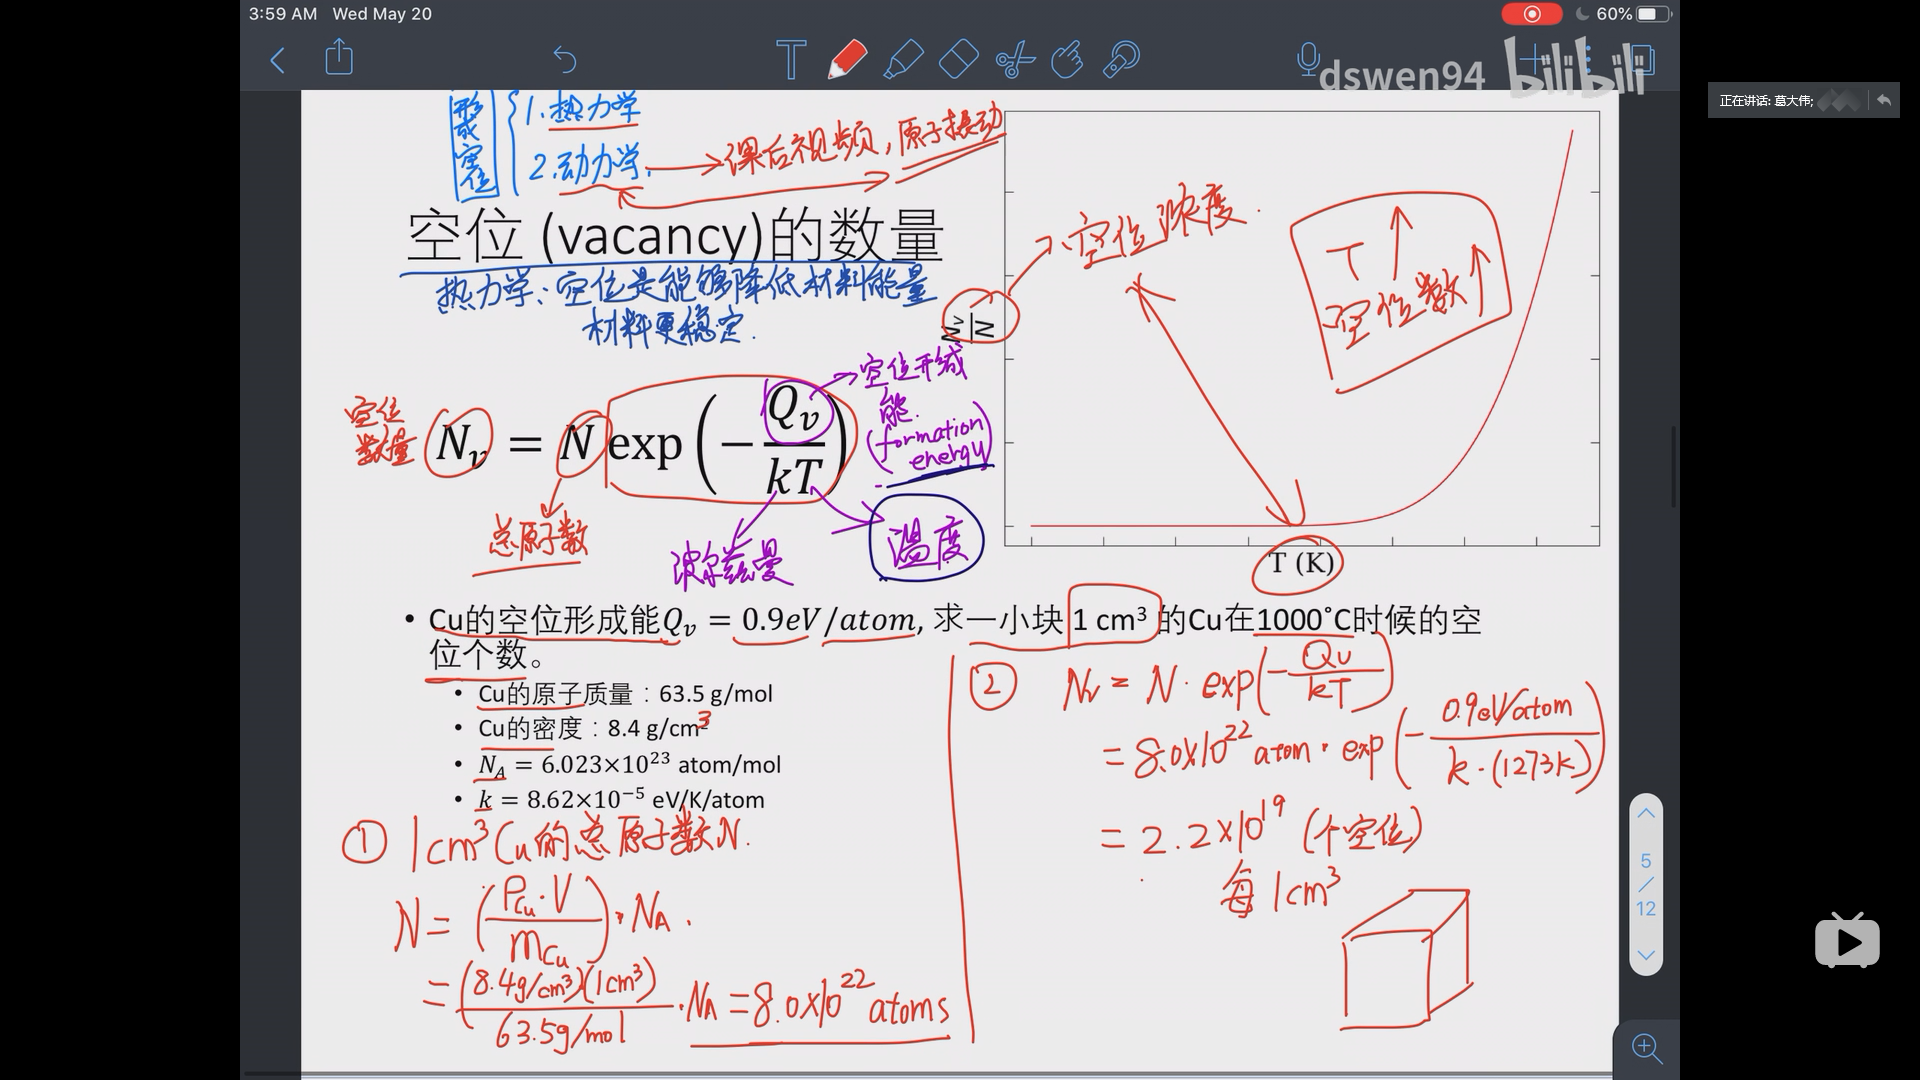 3:59 AM Wed May 20
60%
dswen94 bilibili
正在讲话: 葛大伟;
形成空位
1.热力学
2.动力学. → 课后视频, 原子振动
空位 (vacancy)的数量
热力学: 空位是能够降低材料能量
材料更稳定.
空位浓度.
T ↑
空位数 ↑
Nv/N
T (K)
空位数量
N_v = N exp(−Q_v/kT)
空位形成能.
(formation energy)
总原子数
波尔兹曼
温度
• Cu的空位形成能Q_v = 0.9eV/atom, 求一小块 1 cm³ 的Cu在1000˚C时候的空
位个数。
• Cu的原子质量：63.5 g/mol
• Cu的密度：8.4 g/cm³
• N_A = 6.023×10²³ atom/mol
• k = 8.62×10⁻⁵ eV/K/atom
① 1cm³ Cu的总原子数N.
N = (ρCu·V/mCu)·NA.
= (8.4g/cm³)(1cm³)/63.5g/mol ·NA = 8.0x10²² atoms
② Nv = N·exp(−Qv/kT)
= 8.0x10²² atom·exp(−0.9eV/atom/k·(1273K))
= 2.2x10¹⁹ (个空位)
每 1cm³
5
/
12